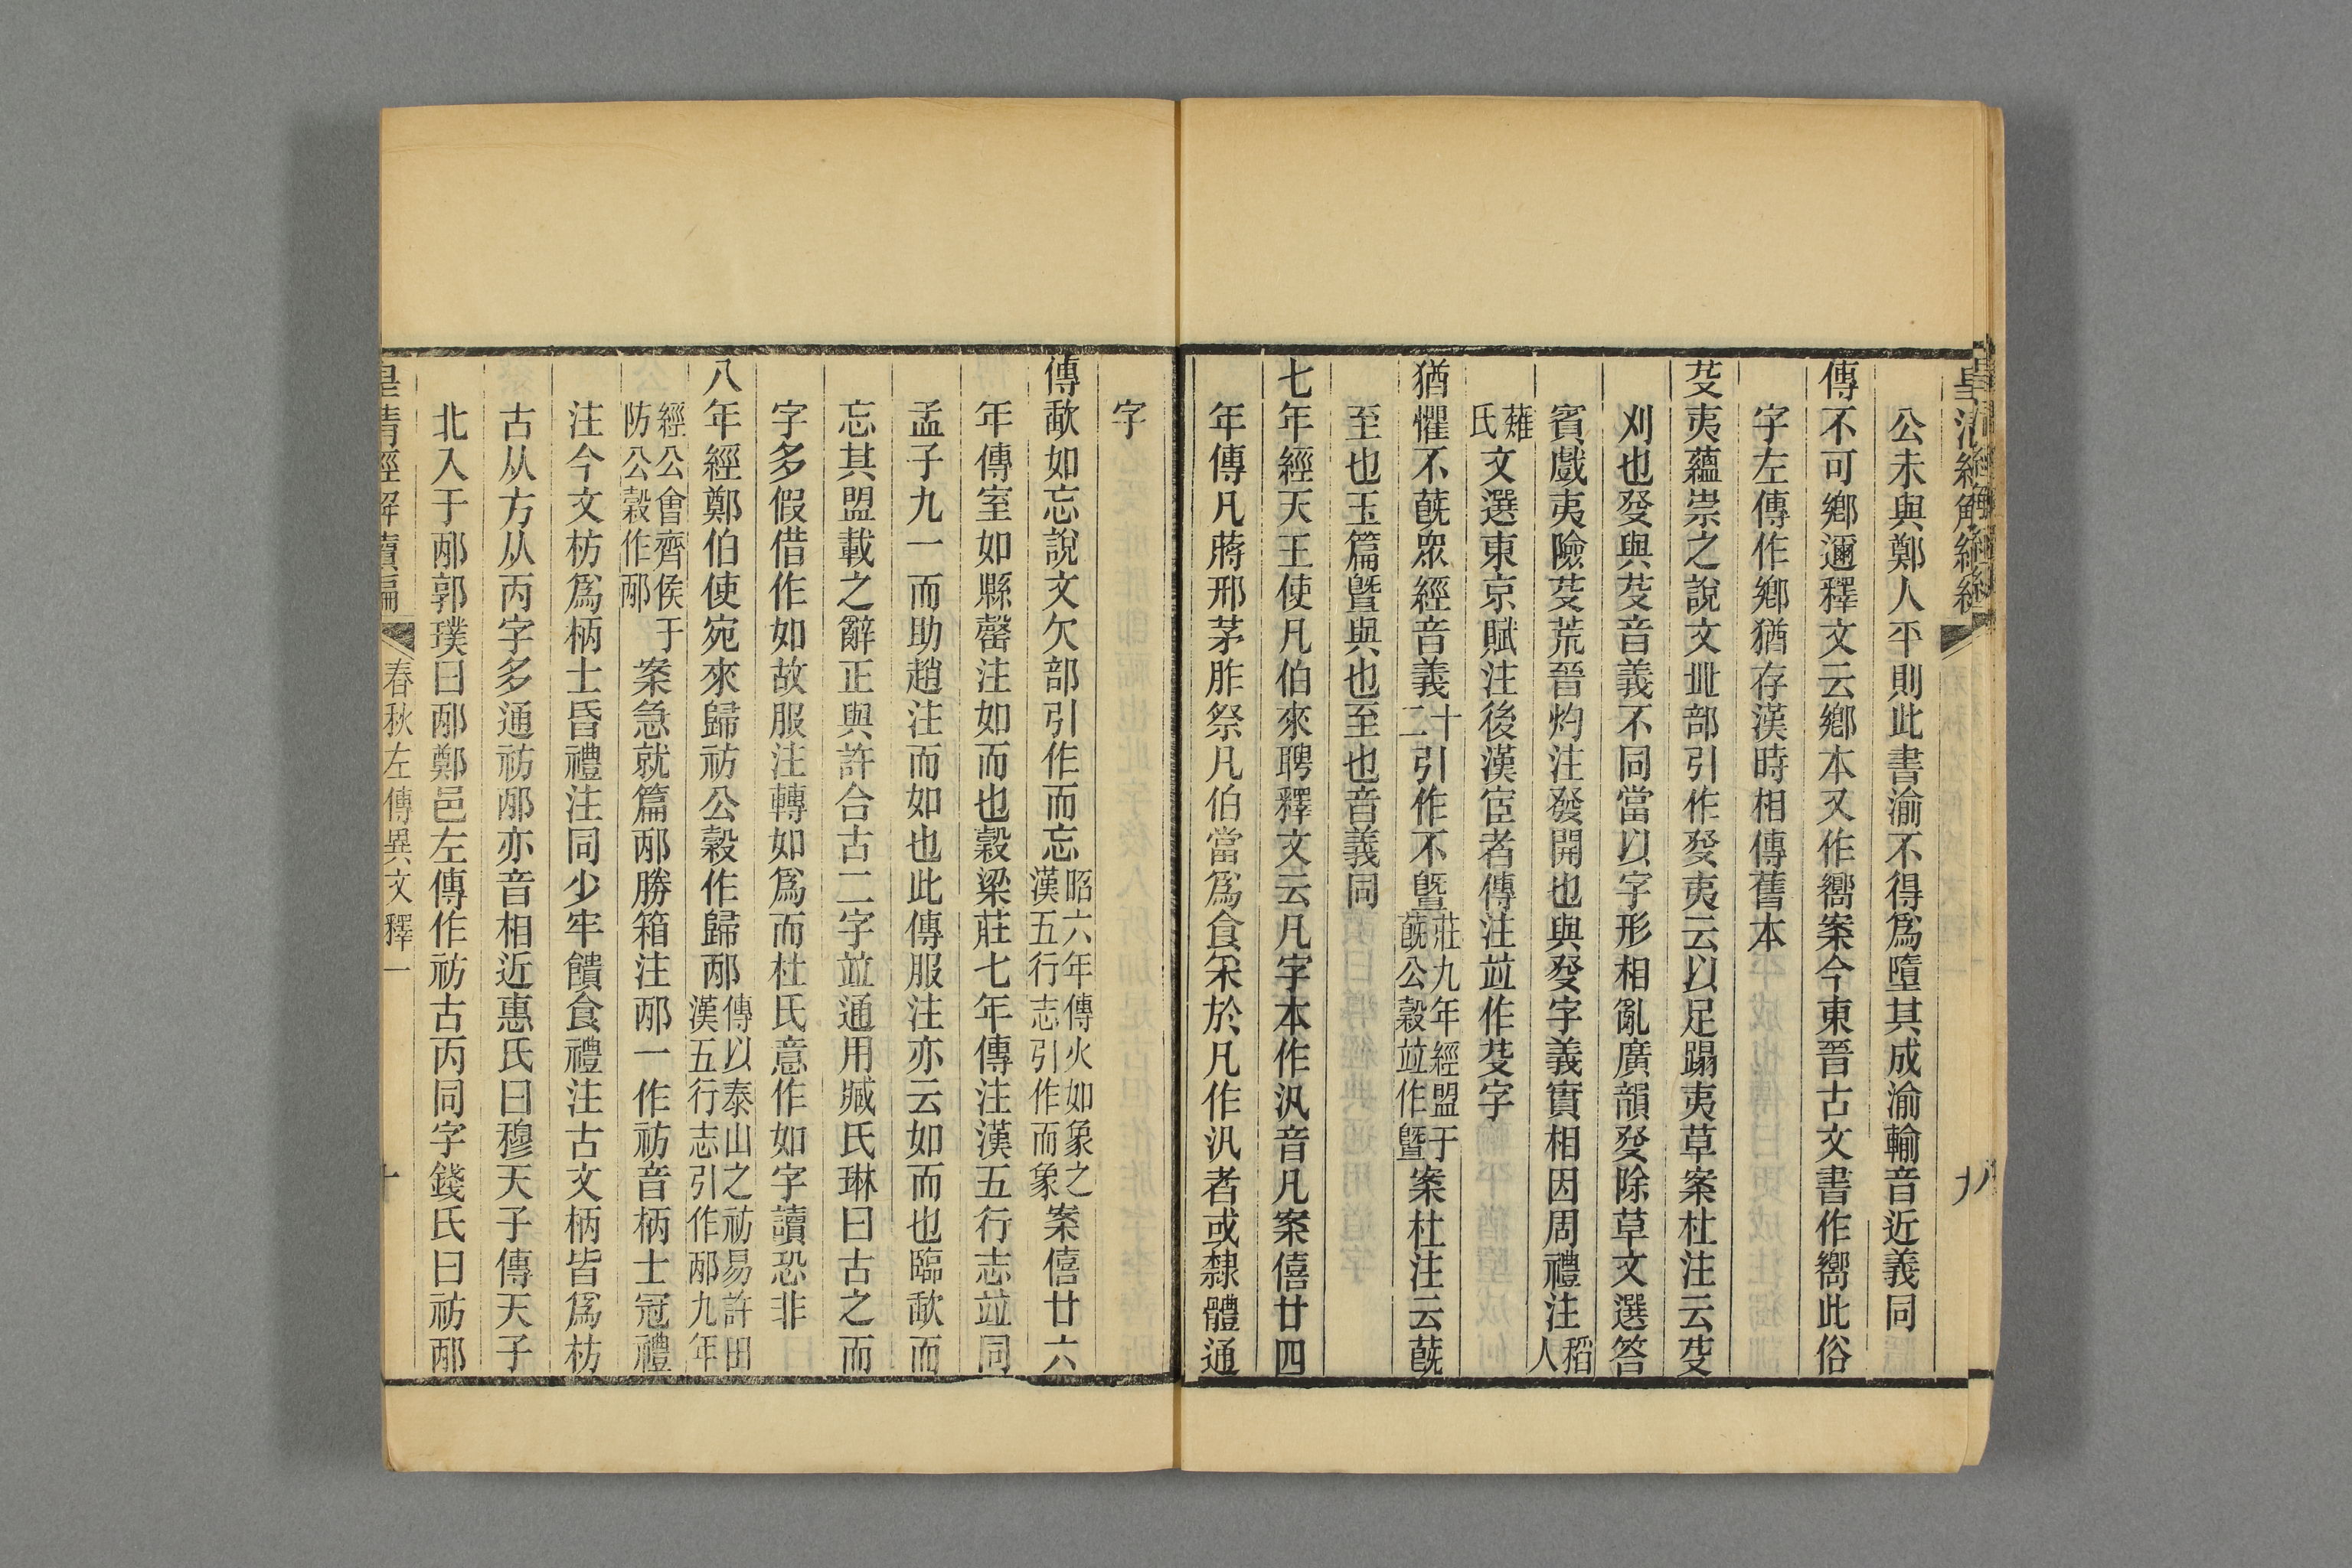 公未與鄭人平則此書渝不得爲墮其成渝輸音近義同
傳不可鄉邇釋文云鄉本又作嚮案今東晉古文書作嚮此俗
字左傳作鄉猶存漢時相傳舊本
芟夷蘊崇之說文癶部引作癹夷云以足蹋夷草案杜注云芟
刈也癹與芟音義不同當以字形相亂廣韻癹除草文選答
賓戲夷險芟荒晉灼注發開也與癹字義實相因周禮注稻人
薙氏文選東京賦注後漢宦者傳注竝作芟字
猶懼不蔇眾經音義十二引作不曁莊九年經盟于蔇公穀竝作曁案杜注云蔇
至也玉篇曁與也至也音義同
七年經天王使凡伯來聘釋文云凡字本作汎音凡案僖廿四
年傳凡蔣邢茅胙祭凡伯當爲食采於凡作汎者或隸體通
字
傳歃如忘說文欠部引作而忘昭六年傳火如象之漢五行志引作而象案僖廿六
年傳室如縣罄注如而也穀梁莊七年傳注漢五行志竝同
孟子九一而助趙注而如也此傳服注亦云如而也臨歃而
忘其盟載之辭正與許合古二字竝通用臧氏琳曰古之而
字多假借作如故服注轉如爲而杜氏意作如字讀恐非
八年經鄭伯使宛來歸祊公穀作歸邴傳以泰山之祊易許田漢五行志引作邴九年
經公會齊侯于防公穀作邴案急就篇邴勝箱注邴一作祊音柄士冠禮
注今文枋爲柄士昏禮注同少牢饋食禮注古文柄皆爲枋
古从方从丙字多通祊邴亦音相近惠氏曰穆天子傳天子
北入于邴郭璞曰邴鄭邑左傳作祊古丙同字錢氏曰祊邴
皇清經解續編 春秋左傳異文釋一 十